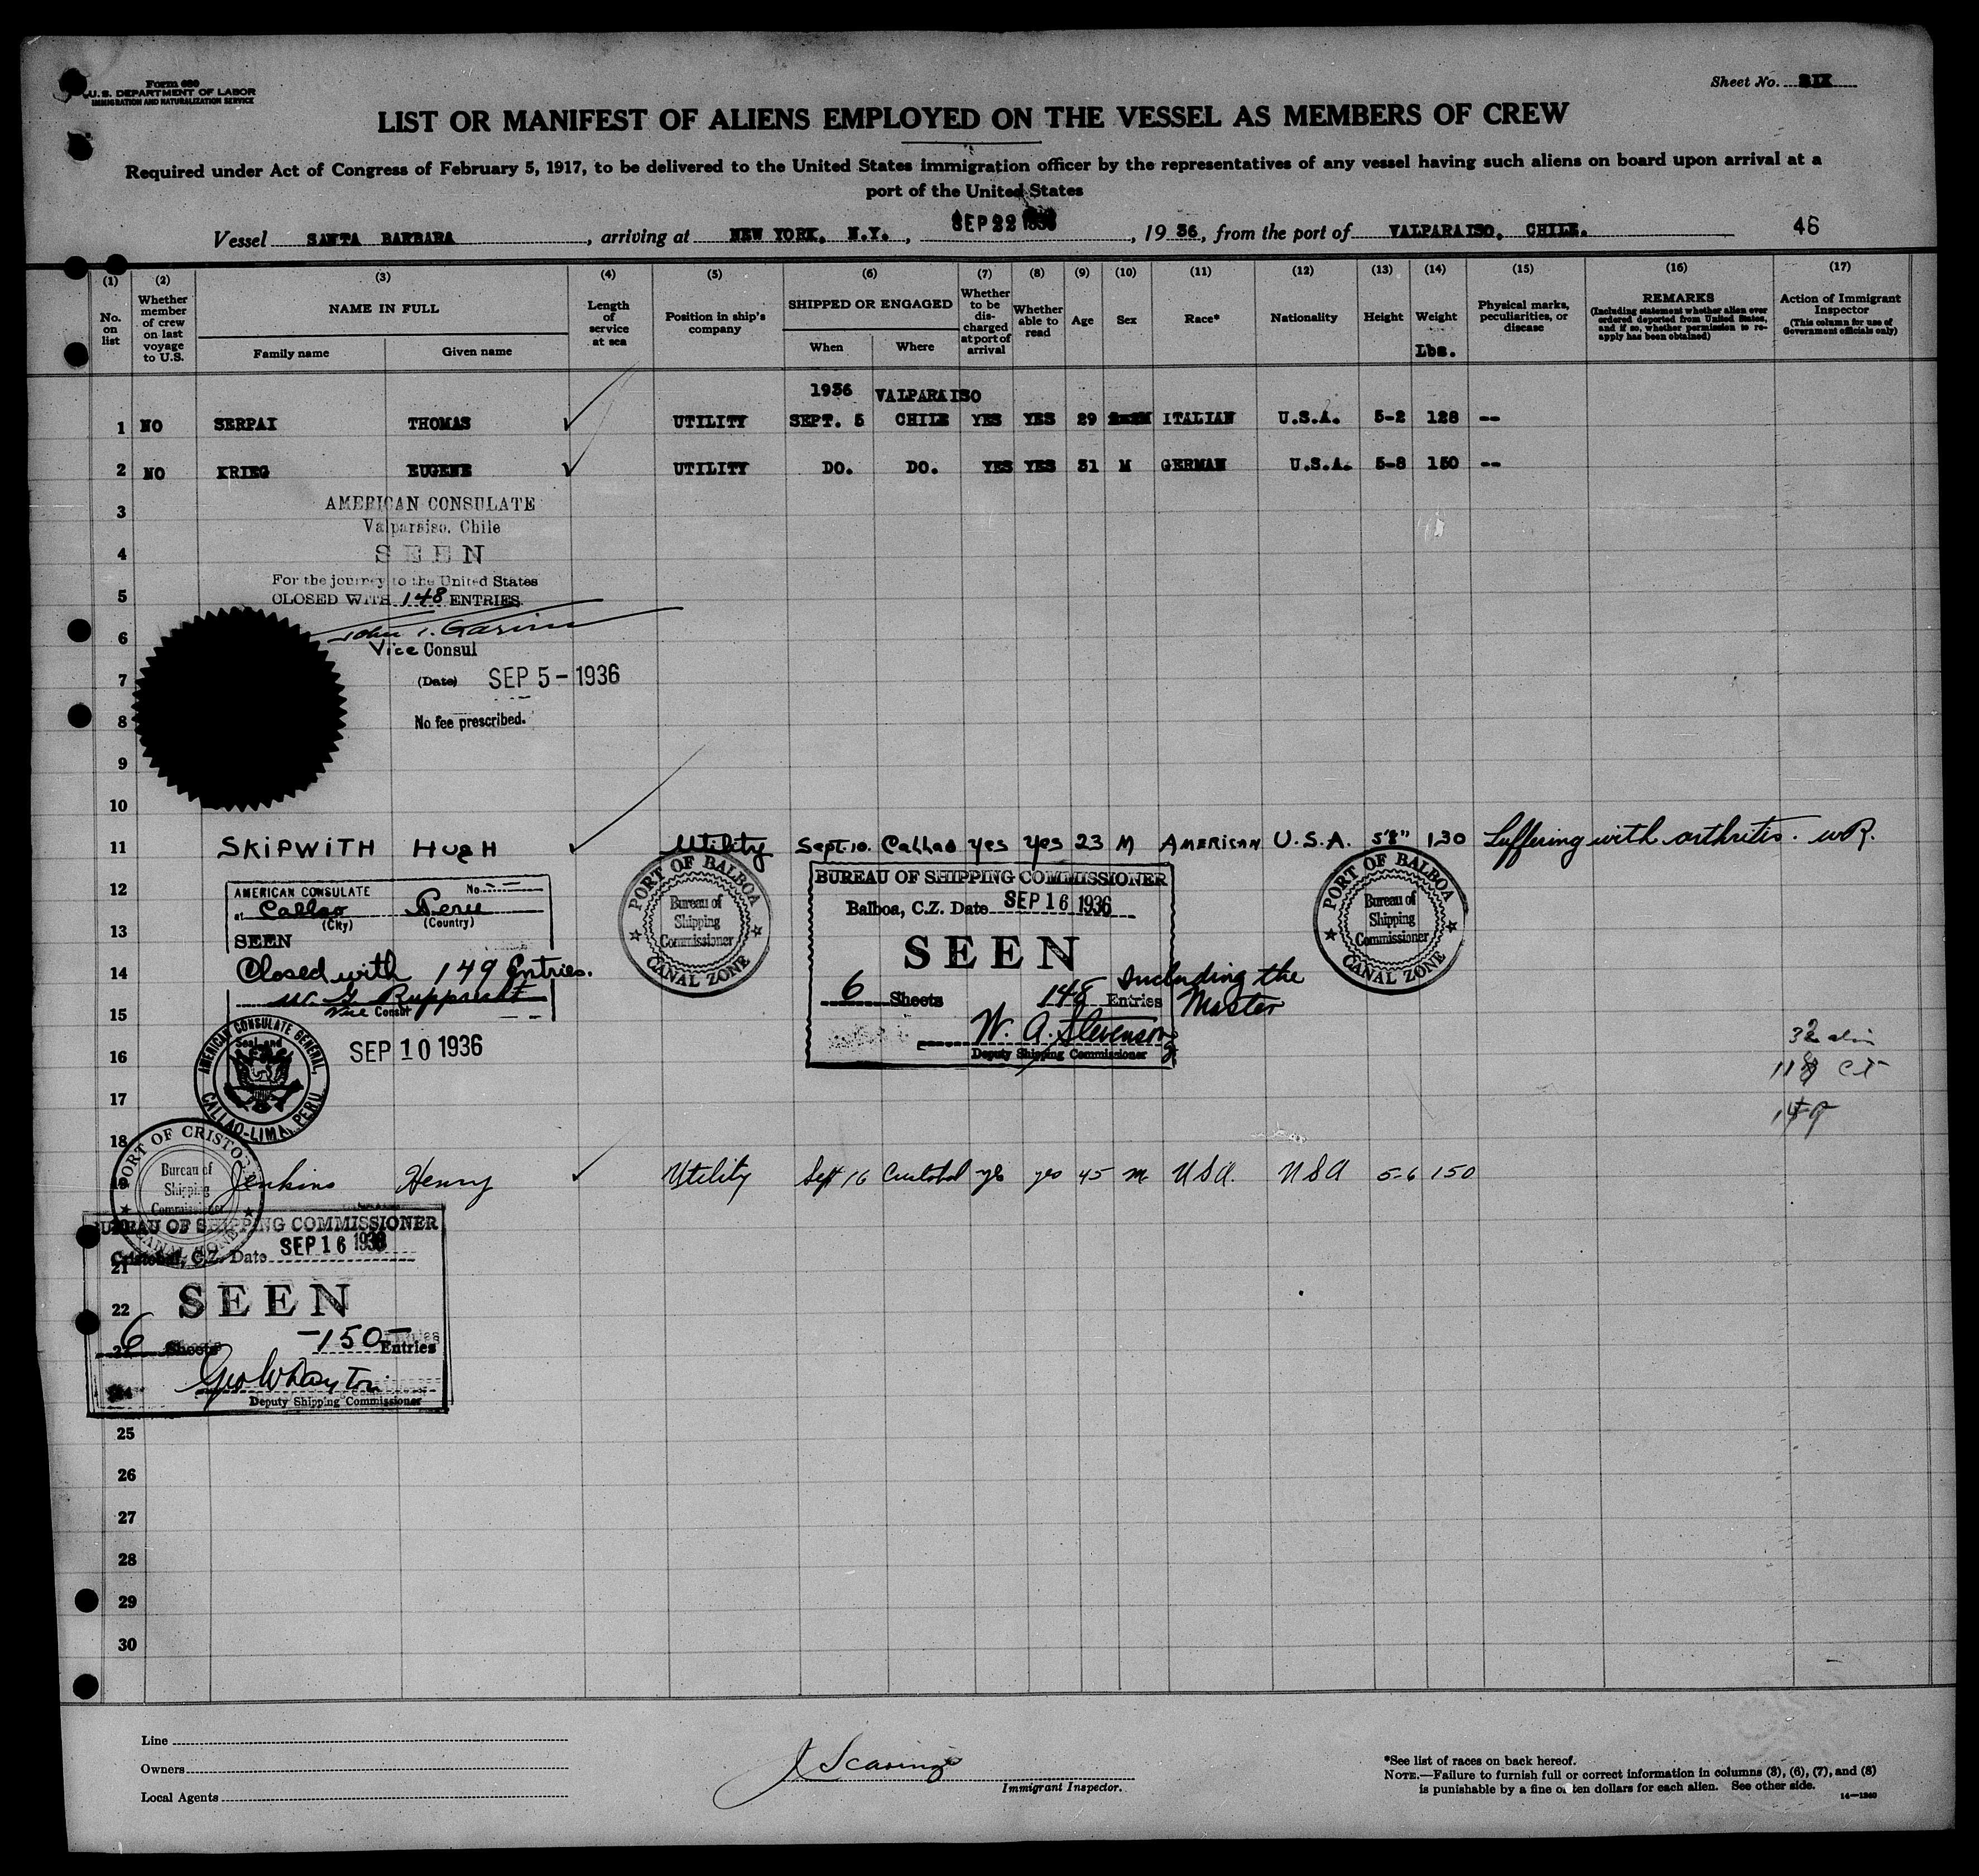 Form 680
U. S. DEPARTMENT OF LABOR
IMMIGRATION AND NATURALIZATION SERVICE
Sheet No. SIX
LIST OR MANIFEST OF ALIENS EMPLOYED ON THE VESSEL AS MEMBERS OF CREW
Required under Act of Congress of February 5, 1917, to be delivered to the United States immigration officer by the representatives of any vessel having such aliens on board upon arrival at a
port of the United States
Vessel SANTA BARBARA, arriving at NEW YORK, N.Y., SEP 22 1936, 1936, from the port of VALPARAISO, CHILE. 46
(1) (2) (3) (4) (5) (6) (7) (8) (9) (10) (11) (12) (13) (14) (15) (16) (17)
No. on list
Whether member of crew on last voyage to U.S.
NAME IN FULL
Family name Given name
Length of service at sea
Position in ship's company
SHIPPED OR ENGAGED
When Where
Whether to be discharged at port of arrival
Whether able to read
Age
Sex
Race*
Nationality
Height
Weight
Lbs.
Physical marks, peculiarities, or disease
REMARKS
(Including statement whether alien ever ordered deported from United States, and if so, whether permission to reapply has been obtained)
Action of Immigrant Inspector
(This column for use of Government officials only)
1936 VALPARAISO
1 NO SERPAI THOMAS ✓ UTILITY SEPT. 5 CHILE YES YES 29 M ITALIAN U.S.A. 5-2 128 --
2 NO KRIEG EUGENE ✓ UTILITY DO. DO. YES YES 31 M GERMAN U.S.A. 5-8 150 --
3
AMERICAN CONSULATE
Valparaiso, Chile
4
SEEN
For the journey to the United States
5
CLOSED WITH 148 ENTRIES
6
Vice Consul
7
(Date) SEP 5 - 1936
8
No fee prescribed.
9
10
11 SKIPWITH HUGH ✓ Utility Sept. 10. Callao yes yes 23 M AMERICAN U.S.A. 5'8" 130 Suffering with arthrites. WR.
12
AMERICAN CONSULATE No. --
at Callao Peru
(City) (Country)
13
SEEN
14
Closed with 149 Entries.
W. G. Rupprecht
Vice Consul
15
AMERICAN CONSULATE GENERAL,
CALLAO-LIMA, PERU.
SEP 10 1936
16
17
PORT OF BALBOA
Bureau of
Shipping
Commissioner
CANAL ZONE
BUREAU OF SHIPPING COMMISSIONER
Balboa, C.Z. Date SEP 16 1936
SEEN
6 Sheets 148 Entries Including the
Master
W. A. Stevenson
Deputy Shipping Commissioner
PORT OF BALBOA
Bureau of
Shipping
Commissioner
CANAL ZONE
149
18
PORT OF CRISTO
Bureau of
Shipping
Commissioner
CANAL ZONE
19 Jenkins Henry ✓ Utility Sept 16 Cristobal yes yes 45 M USA. USA 5-6 150
BUREAU OF SHIPPING COMMISSIONER
Cristobal, C.Z. Date SEP 16 1936
21
SEEN
22
6 Sheets -150- Entries
Geo W Dayton
Deputy Shipping Commissioner
25
26
27
28
29
30
Line
Owners
Local Agents
Immigrant Inspector.
*See list of races on back hereof.
NOTE.—Failure to furnish full or correct information in columns (3), (6), (7), and (8)
is punishable by a fine of ten dollars for each alien. See other side.
14—1240